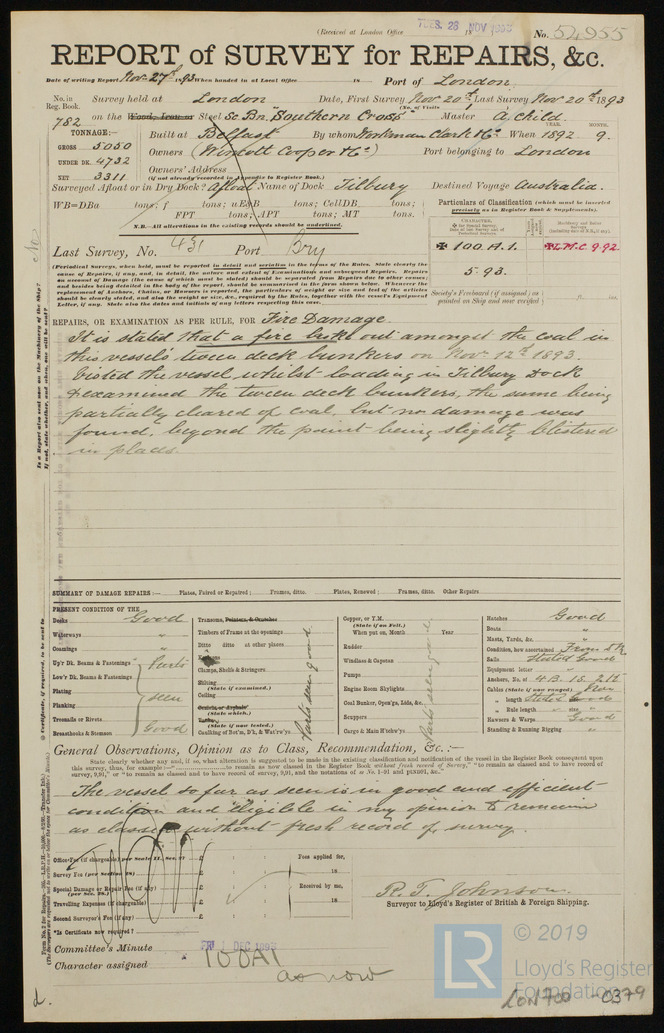 (Received at London Office TUES. 28 NOV 1893 18
No. 54955
REPORT of SURVEY for REPAIRS, &c.
Date of writing Report Nov 27th 1893 When handed in at Local Office 18 Port of London
No. in Reg. Book. 782
Survey held at London Date, First Survey Nov 20th, Last Survey Nov 20th 1893
(No. of Visits 1)
on the Wood, Iron or Steel Sc Bn. "Southern Cross" Master A. Child.
TONNAGE:—
GROSS 5050
UNDER DK. 4732
NET 3311
Built at Belfast By whom Workman Clark & Co. When 1892 YEAR. 9. MONTH.
Owners (Wincott Cooper & Co) Port belonging to London
Owners' Address
(if not already recorded in Appendix to Register Book.)
Surveyed Afloat or in Dry Dock? Afloat Name of Dock Tilbury Destined Voyage Australia.
WB=DBa tons; f tons; uE&B tons; CellDB tons;
FPT tons; APT tons; MT tons.
N.B.—All alterations in the existing records should be underlined.
Particulars of Classification (which must be inserted precisely as in Register Book & Supplements).
CHARACTER.
✠ 100 A.1. ✠ L.M.C 9.92.
5.93.
Last Survey, No. 431 Port Bry
(Periodical) Surveys, when held, must be reported in detail and seriatim in the terms of the Rules. State clearly the cause of Repairs, if any, and, in detail, the nature and extent of Examinations and subsequent Repairs. Repairs on account of Damage (the cause of which must be stated) should be separated from Repairs due to other causes; and besides being detailed in the body of the report, should be summarised in the form shown below. Whenever the replacement of Anchors, Chains, or Hawsers is reported, the particulars of weight or size and test of the articles should be clearly stated, and also the weight or size &c., required by the Rules, together with the vessel's Equipment Letter, if any. State also the dates and initials of any letters respecting this case.
Society's Freeboard (if assigned) as painted on Ship and now verified ft. ins.
REPAIRS, OR EXAMINATION AS PER RULE, FOR Fire Damage.
It is stated that a fire broke out amongst the coal in
this vessel's tween deck bunkers on Nov. 12th 1893.
Visited the vessel whilst loading in Tilbury Dock
& examined the tween deck bunkers, the same being
partially cleared of coal, but no damage was
found, beyond the paint being slightly blistered
in places.
SUMMARY OF DAMAGE REPAIRS:— Plates, Faired or Repaired; Frames, ditto. Plates, Renewed; Frames, ditto. Other Repairs
PRESENT CONDITION OF THE
Decks Good
Waterways "
Coamings "
Up'r Dk. Beams & Fastenings parts
Low'r Dk. Beams & Fastenings
Plating seen
Planking
Treenails or Rivets
Breasthooks & Stemson Good
Transoms, Pointers, & Crutches
Timbers of Frame at the openings
Ditto ditto at other places
Keelsons
Clamps, Shelfs & Stringers
Salting
(State if examined.)
Ceiling
(State which.)
(State if now tested.)
Caulking of Bot'm, D'k, & Wat'rw'ys
Parts seen good
Copper, or Y.M.
(State if on Felt.)
When put on, Month Year
Rudder
Windlass & Capstan
Pumps
Engine Room Skylights
Coal Bunker, Open'gs, Lids, &c.
Scuppers
Cargo & Main H'tchw'ys
Parts seen good
Hatches Good
Boats "
Masts, Yards, &c. "
Condition, how ascertained From DK
Sails Stated Good
Equipment letter
Anchors, No. of 4 B. 1S. 2K
Cables (State if now ranged) Non
" length Stated Good
" Rule length size
Hawsers & Warps Good
Standing & Running Rigging "
General Observations, Opinion as to Class, Recommendation, &c.:—
State clearly whether any, and if so, what alteration is suggested to be made in the existing classification and notification of the vessel in the Register Book consequent upon this survey, thus, for example:— "to remain as now classed in the Register Book without fresh record of Survey," "to remain as classed and to have record of survey, 9,91," or "to remain as classed and to have record of survey, 9,91, and the notations of
The vessel so far as seen is in good and efficient
condition and eligible in my opinion to remain
as classed without fresh record of survey.
Office Fee (if chargeable) per Scale II., Sec. 27 £
Survey Fee (per Section 28) £
Special Damage or Repair Fee (if any) (per Sec. 28.) £
Travelling Expenses (if chargeable) £
Second Surveyor's Fee (if any) £
*Is Certificate now required?
Fees applied for, 18
Received by me, 18
R. T. Johnson.
Surveyor to Lloyd's Register of British & Foreign Shipping.
Committee's Minute FRI 1 DEC 1893
Character assigned 100A1
as now
© 2019
LR
Lloyd's Register
Foundation
LON 700 - 0379